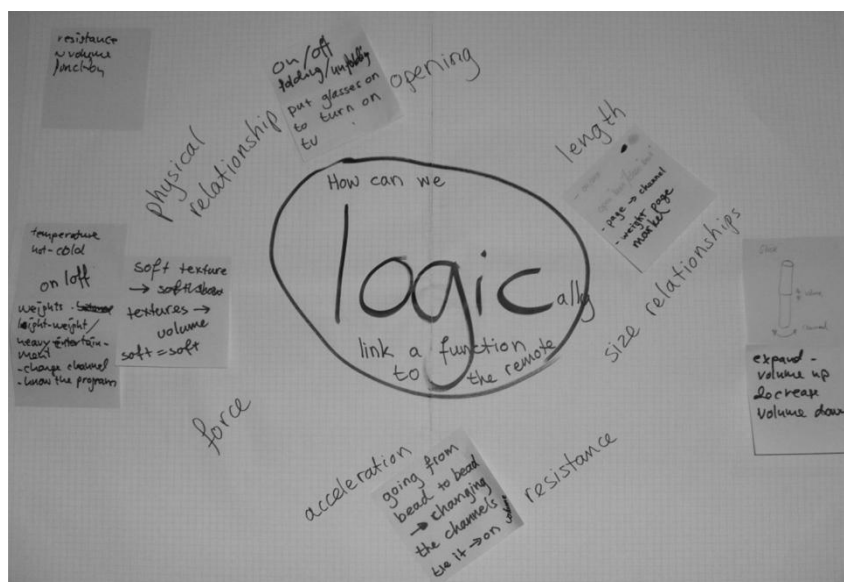 resistance
volume
function
on/off
folding/unfolding
put glasses on
to turn on
tv
opening
physical
relationship
length
- page → channel
- weight page
marker
size relationships
How can we
logic
ally
link a function
to the remote
temperature
hot-cold
on/off
weights -
leight-weight/
heavy entertain-
ment
- change channel
- know the program
soft texture
→
textures →
volume
soft = soft
expand -
volume up
decrease
volume down
force
acceleration
going from
bead to bead
→ changing
the channels
tie it → on
resistance